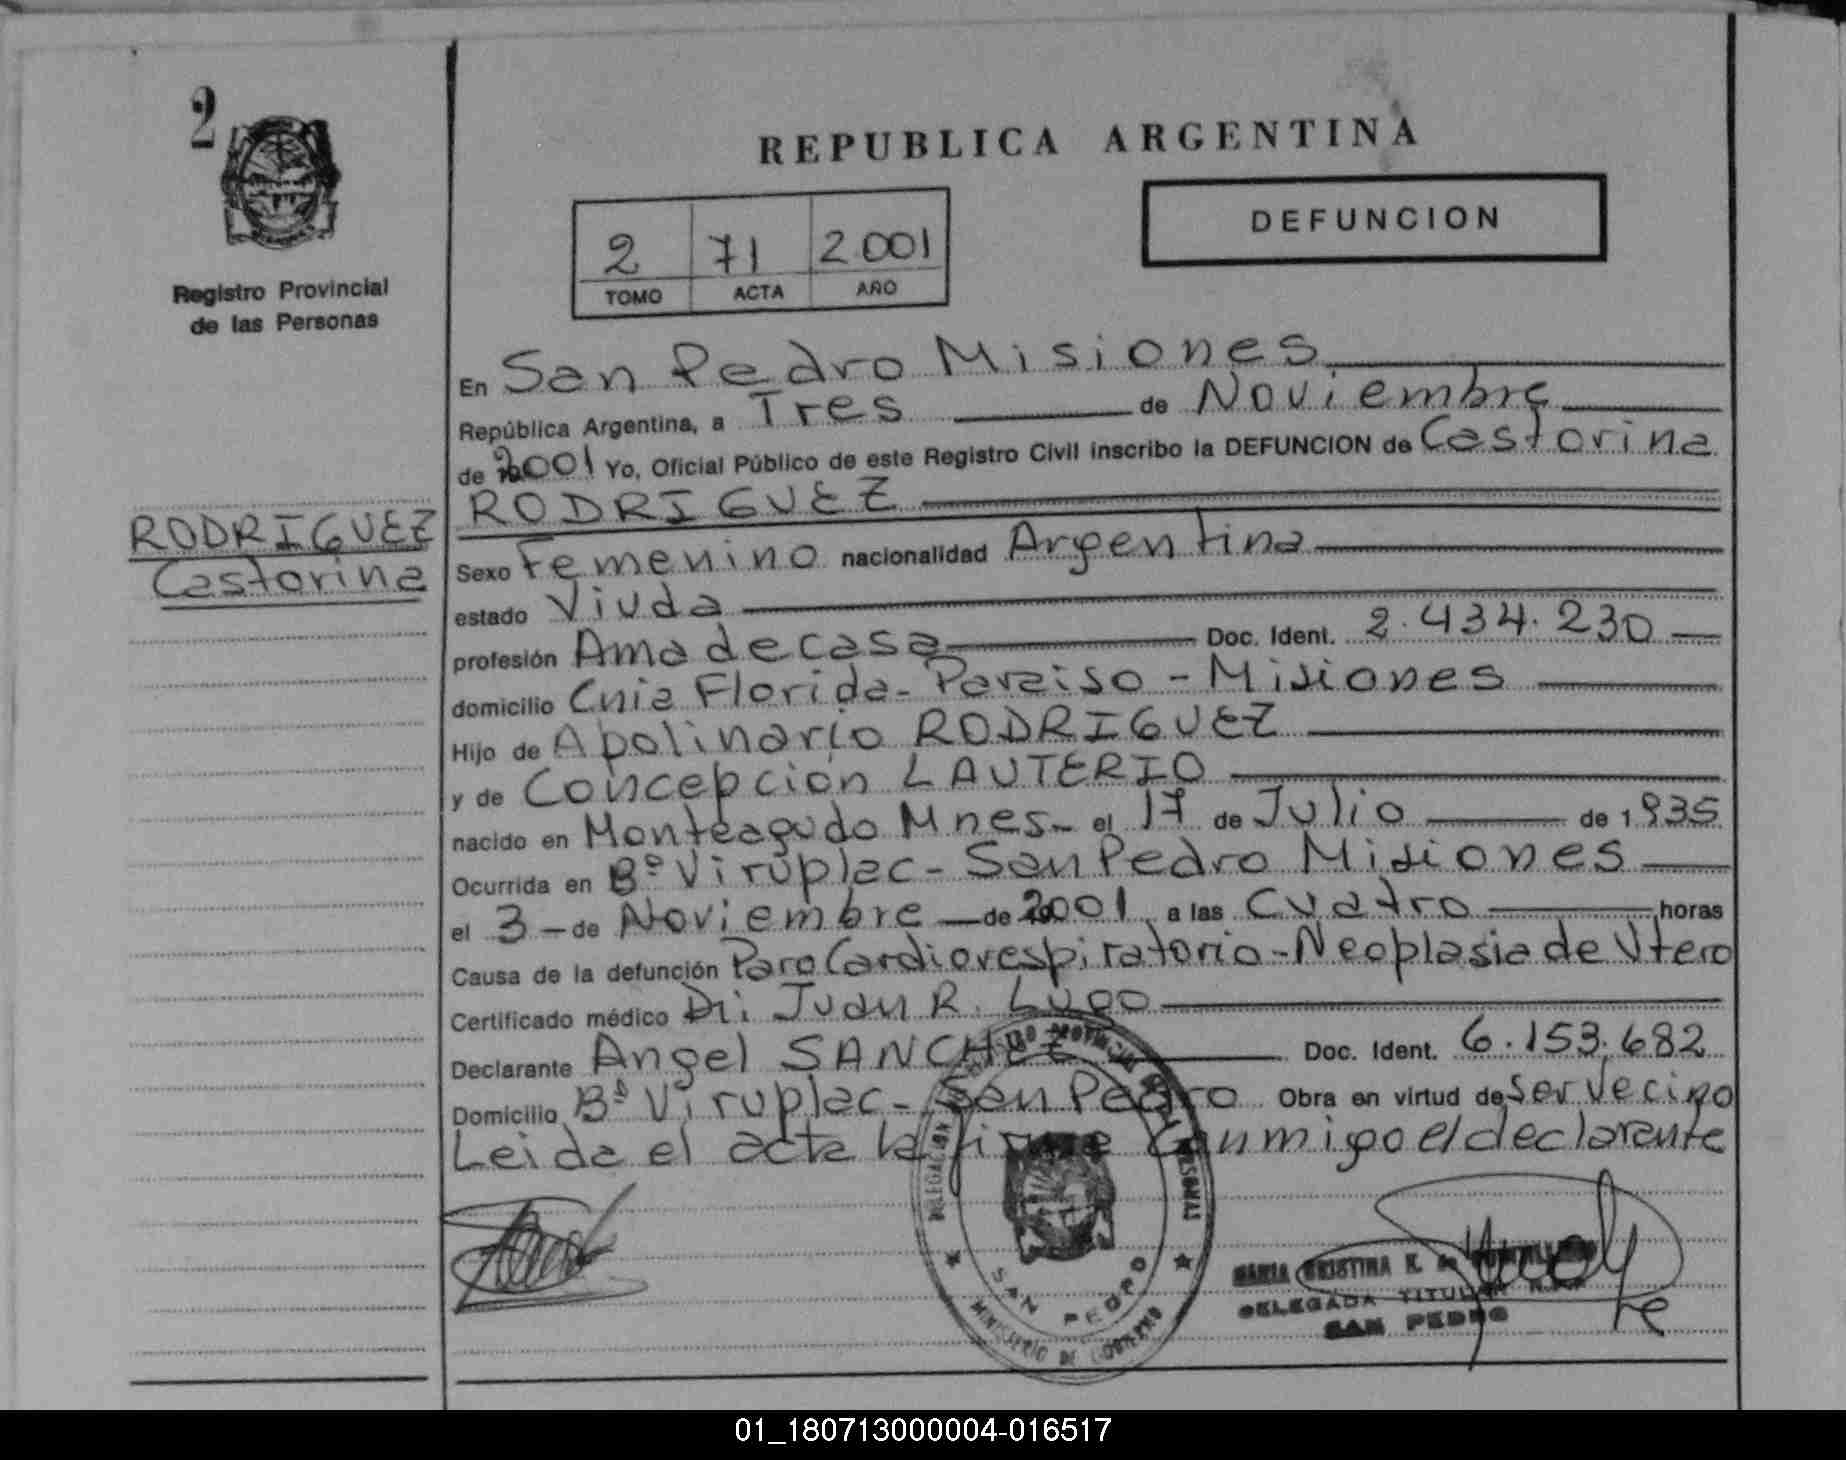 2
Registro Provincial
de las Personas
RODRIGUEZ
Castorina
REPUBLICA ARGENTINA
2 71 2.001
TOMO ACTA AÑO
DEFUNCION
En San Pedro Misiones
República Argentina, a Tres de Noviembre
de 2001 Yo, Oficial Público de este Registro Civil inscribo la DEFUNCION de Castorina
RODRIGUEZ
Sexo Femenino nacionalidad Argentina
estado Viuda
profesión Ama de casa Doc. Ident. 2.434.230
domicilio Cnia Florida - Paraiso - Misiones
Hijo de Apolinario RODRIGUEZ
y de Concepción LAUTERIO
nacido en Monteagudo Mnes - el 17 de Julio de 1935
Ocurrida en Bº Viruplac - San Pedro Misiones
el 3 - de Noviembre - de 2001 a las Cuatro horas
Causa de la defunción Paro Cardiorespiratorio - Neoplasia de Utero
Certificado médico Dr: Juan R. Lugo
Declarante Angel SANCHEZ Doc. Ident. 6.153.682
Domicilio Bº Viruplac - San Pedro Obra en virtud de ser vecino
Leida el acta la firma conmigo el declarante
DELEGACION PROVINCIAL
SAN PEDRO
MINISTERIO DE GOBIERNO
MARIA CRISTINA K. de
DELEGADA TITULAR
SAN PEDRO
01_180713000004-016517